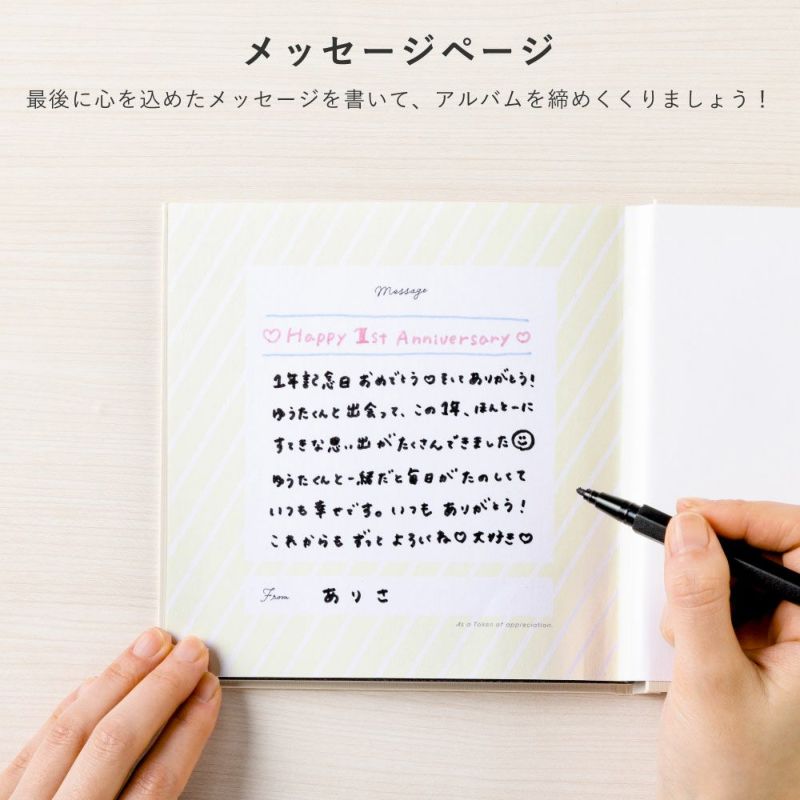 メッセージページ
最後に心を込めたメッセージを書いて、アルバムを締めくくりましょう！
Message
♡Happy 1st Anniversary♡
1年記念日 おめでとう♡そしてありがとう!
ゆうたくんと出会って、この1年、ほんとーに
すてきな思い出がたくさんできました☺
ゆうたくんと一緒だと毎日がたのしくて
いつも幸せです。いつも ありがとう!
これからも ずっと よろしくね♡ 大好き♡
From ありさ
As a Token of appreciation.